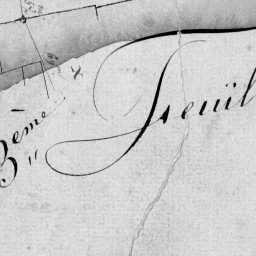 3ème
Feuil